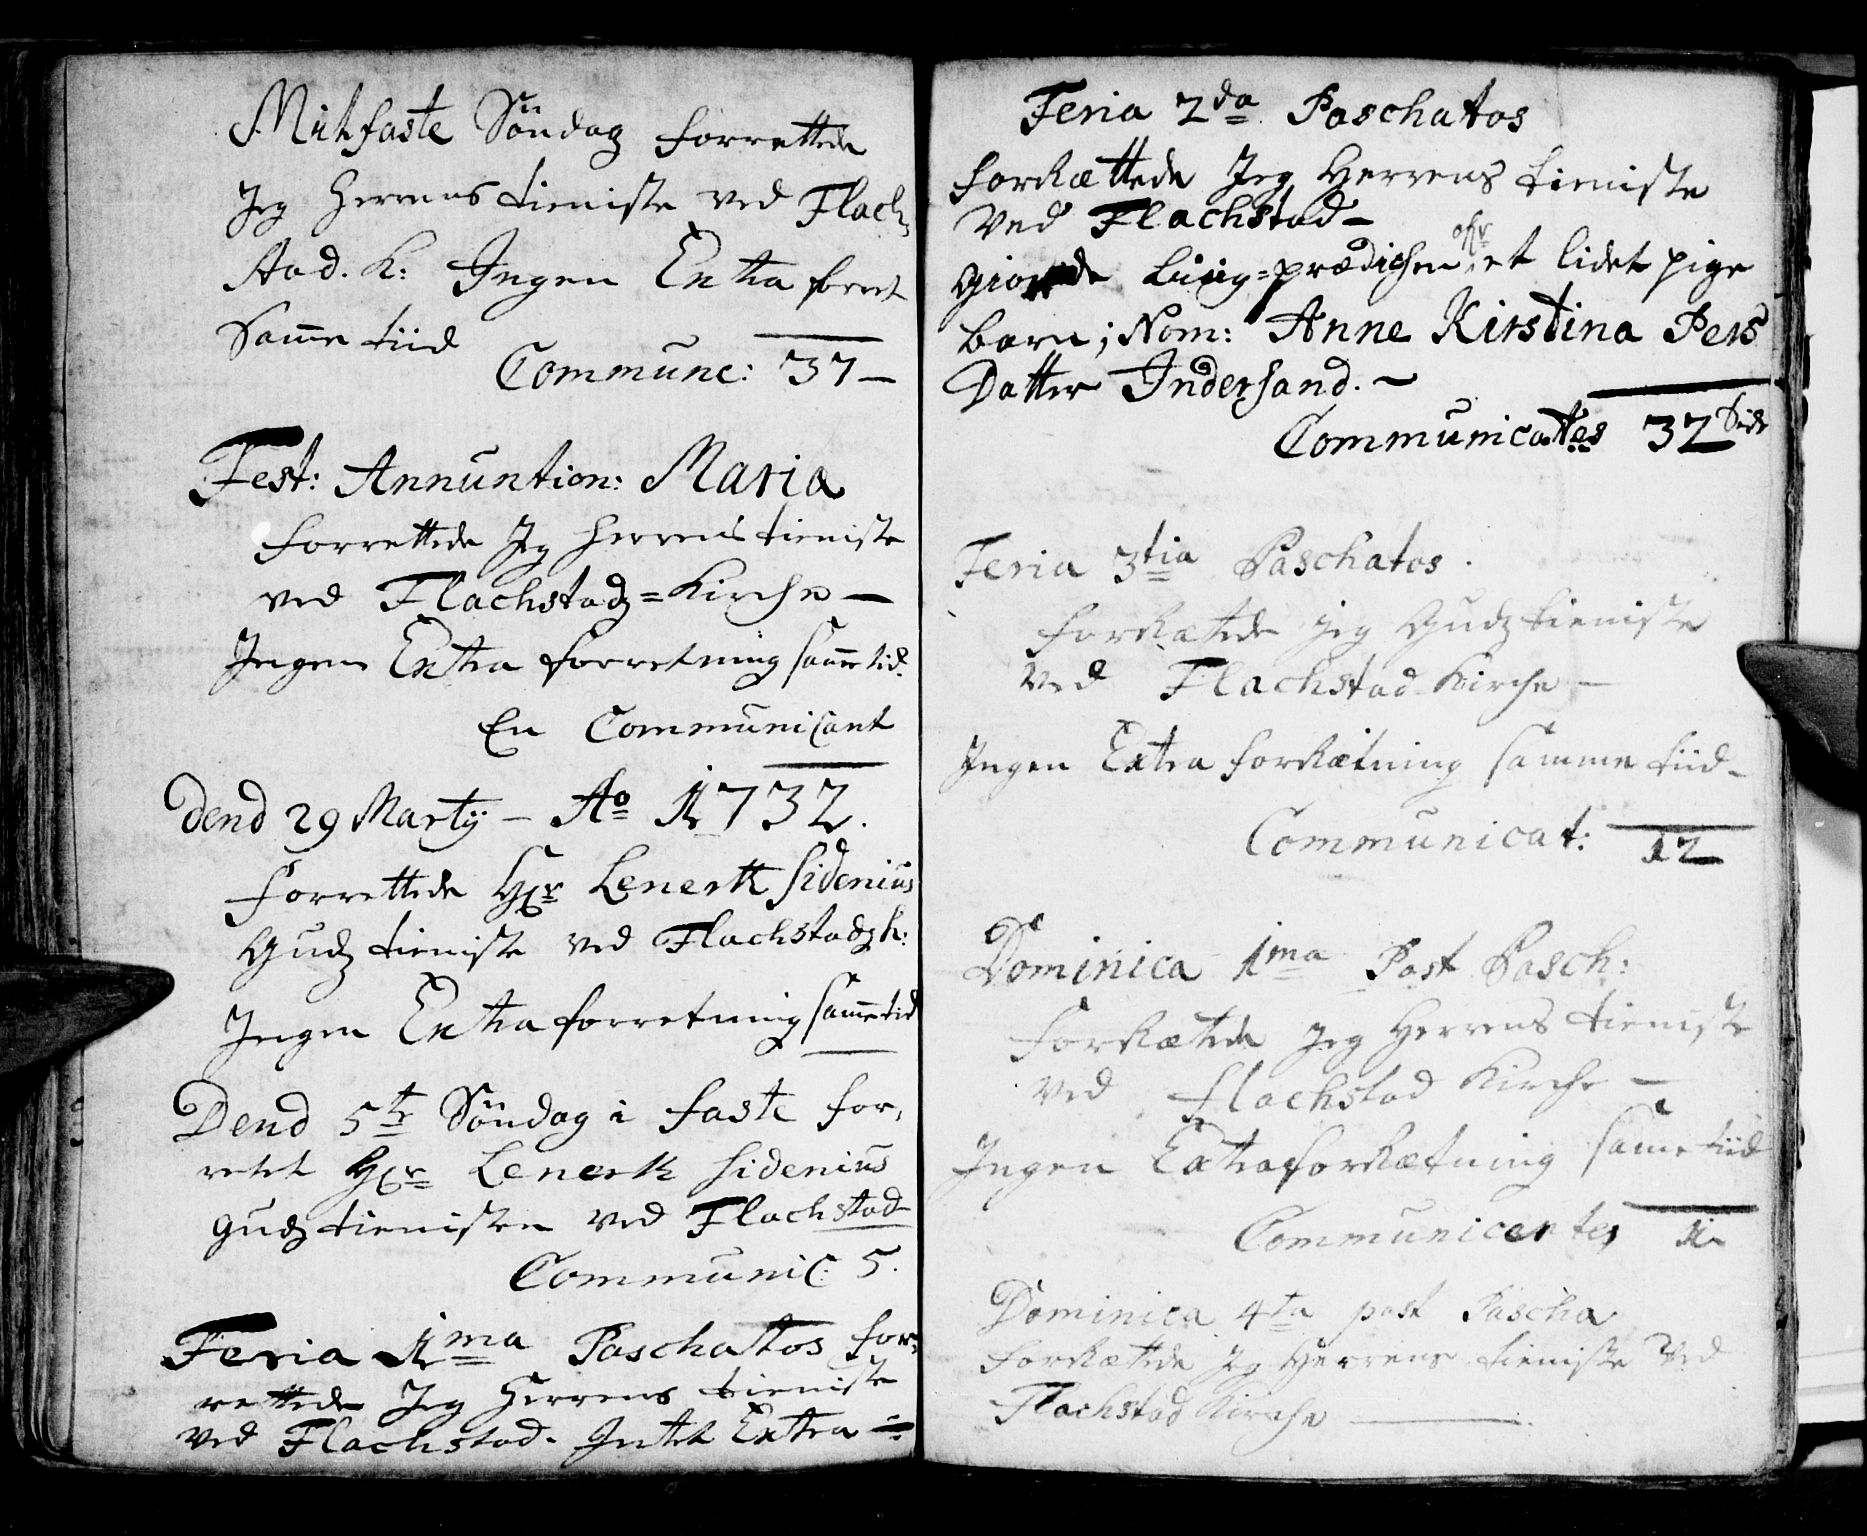 Mitfaste Söndag forrettede
Jeg Herrens tieniste ved Flach-
stad. K: Ingen Extra forret
Samme tiid
Commune: 37 —
Fest: Annuntion: Maria
forrettede Jeg Herrens tieniste
ved Flachstadz = Kirche —
Ingen Extra forretning samme tid.
En Communicant
Dend 29 Martij — Ao 1732.
Forrettede Hr Lenertt Sidenius
Gudz tieniste ved Flachstadz k:
Ingen Extra forretning samme tid
Dend 5te Söndag i faste for-
rettet Hr Lenertt Sidenius
gudz tienisten ved Flachstad
Communic: 5.
Feria 1ma Paschattos for-
rettede Jeg Herrens tieniste
ved Flachstad. Intet Extra —
Feria 2da Paschattos
forRættede Jeg Herrens tieniste
Ved Flachstad —
giorde Liiig=prædichen ofr et lidet pige
barn; Nom: Anne Kirstina Pers
Datter Indersand. —
Communicattes 32
Feria 3tia Paschatos.
forRætede jeg Gudz tieniste
Ved Flachstad Kirche —
Ingen Extra forRætning samme tiid —
Communicat: 12
Dominica 1ma Post Pasch:
ForRætede Jeg Herrens tieniste
Ved Flachstad Kirche —
Ingen Extra forRætning same tiid
Communicentes 1
Dominica 4ta post Pascha
forRættede Jeg Herrens tieniste Ved
Flachstad Kirche —